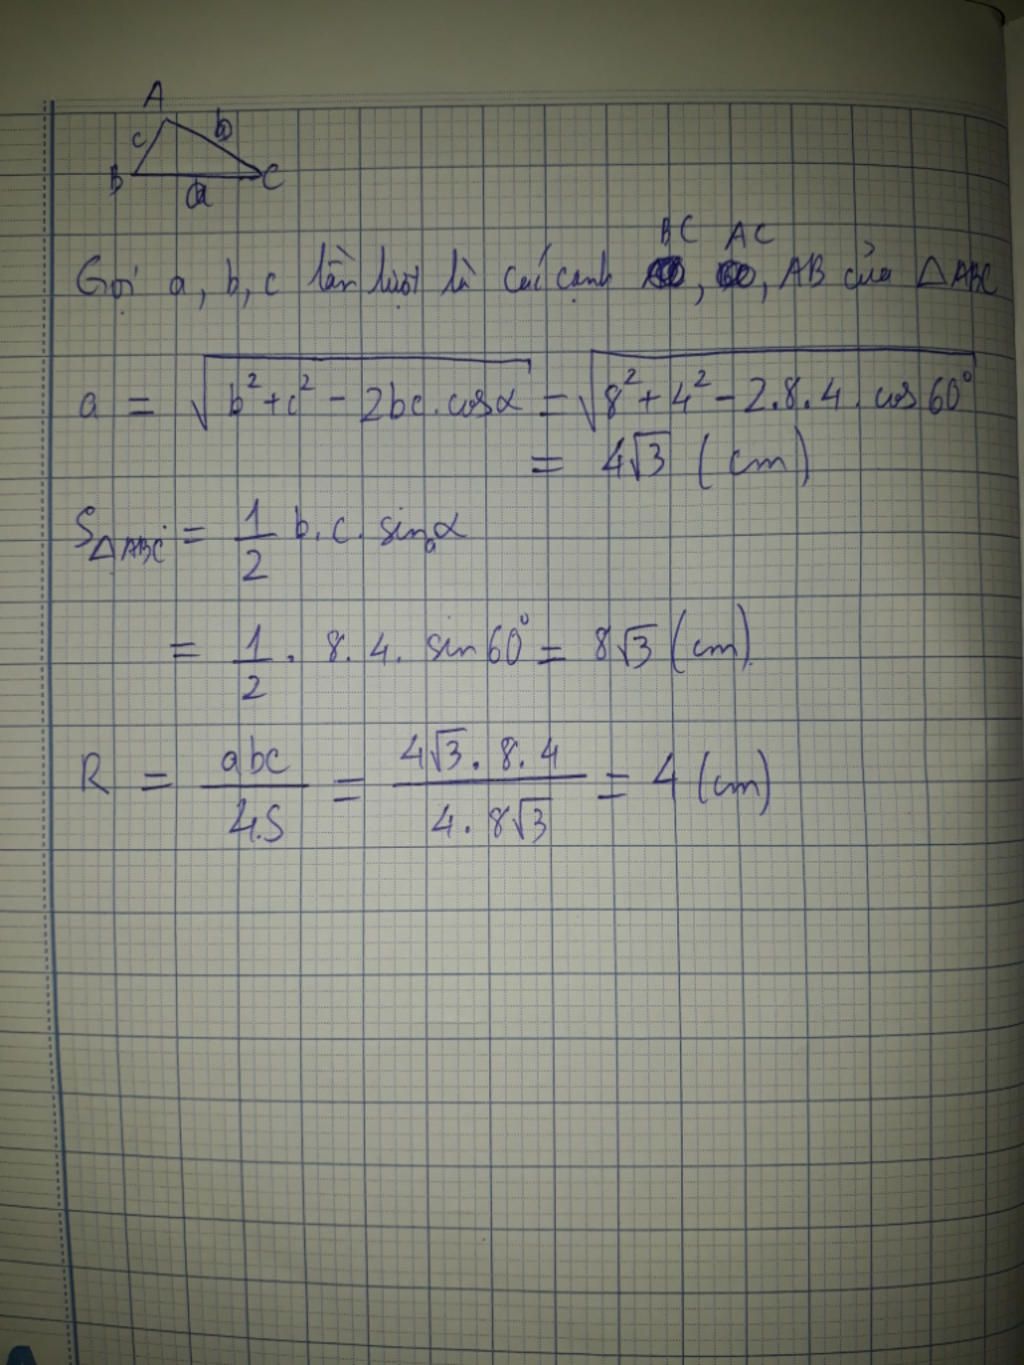 A
c b
B C
a
BC AC
Gọi a, b, c lần lượt là các cạnh , , AB của △ABC
a = √(b² + c² - 2bc.cosα) = √(8² + 4² - 2.8.4.cos60°)
= 4√3 (cm)
S△ABC = 1/2 b.c.sinα
= 1/2 . 8.4. sin60° = 8√3 (cm)
R = abc/4.S = 4√3.8.4/4.8√3 = 4 (cm)